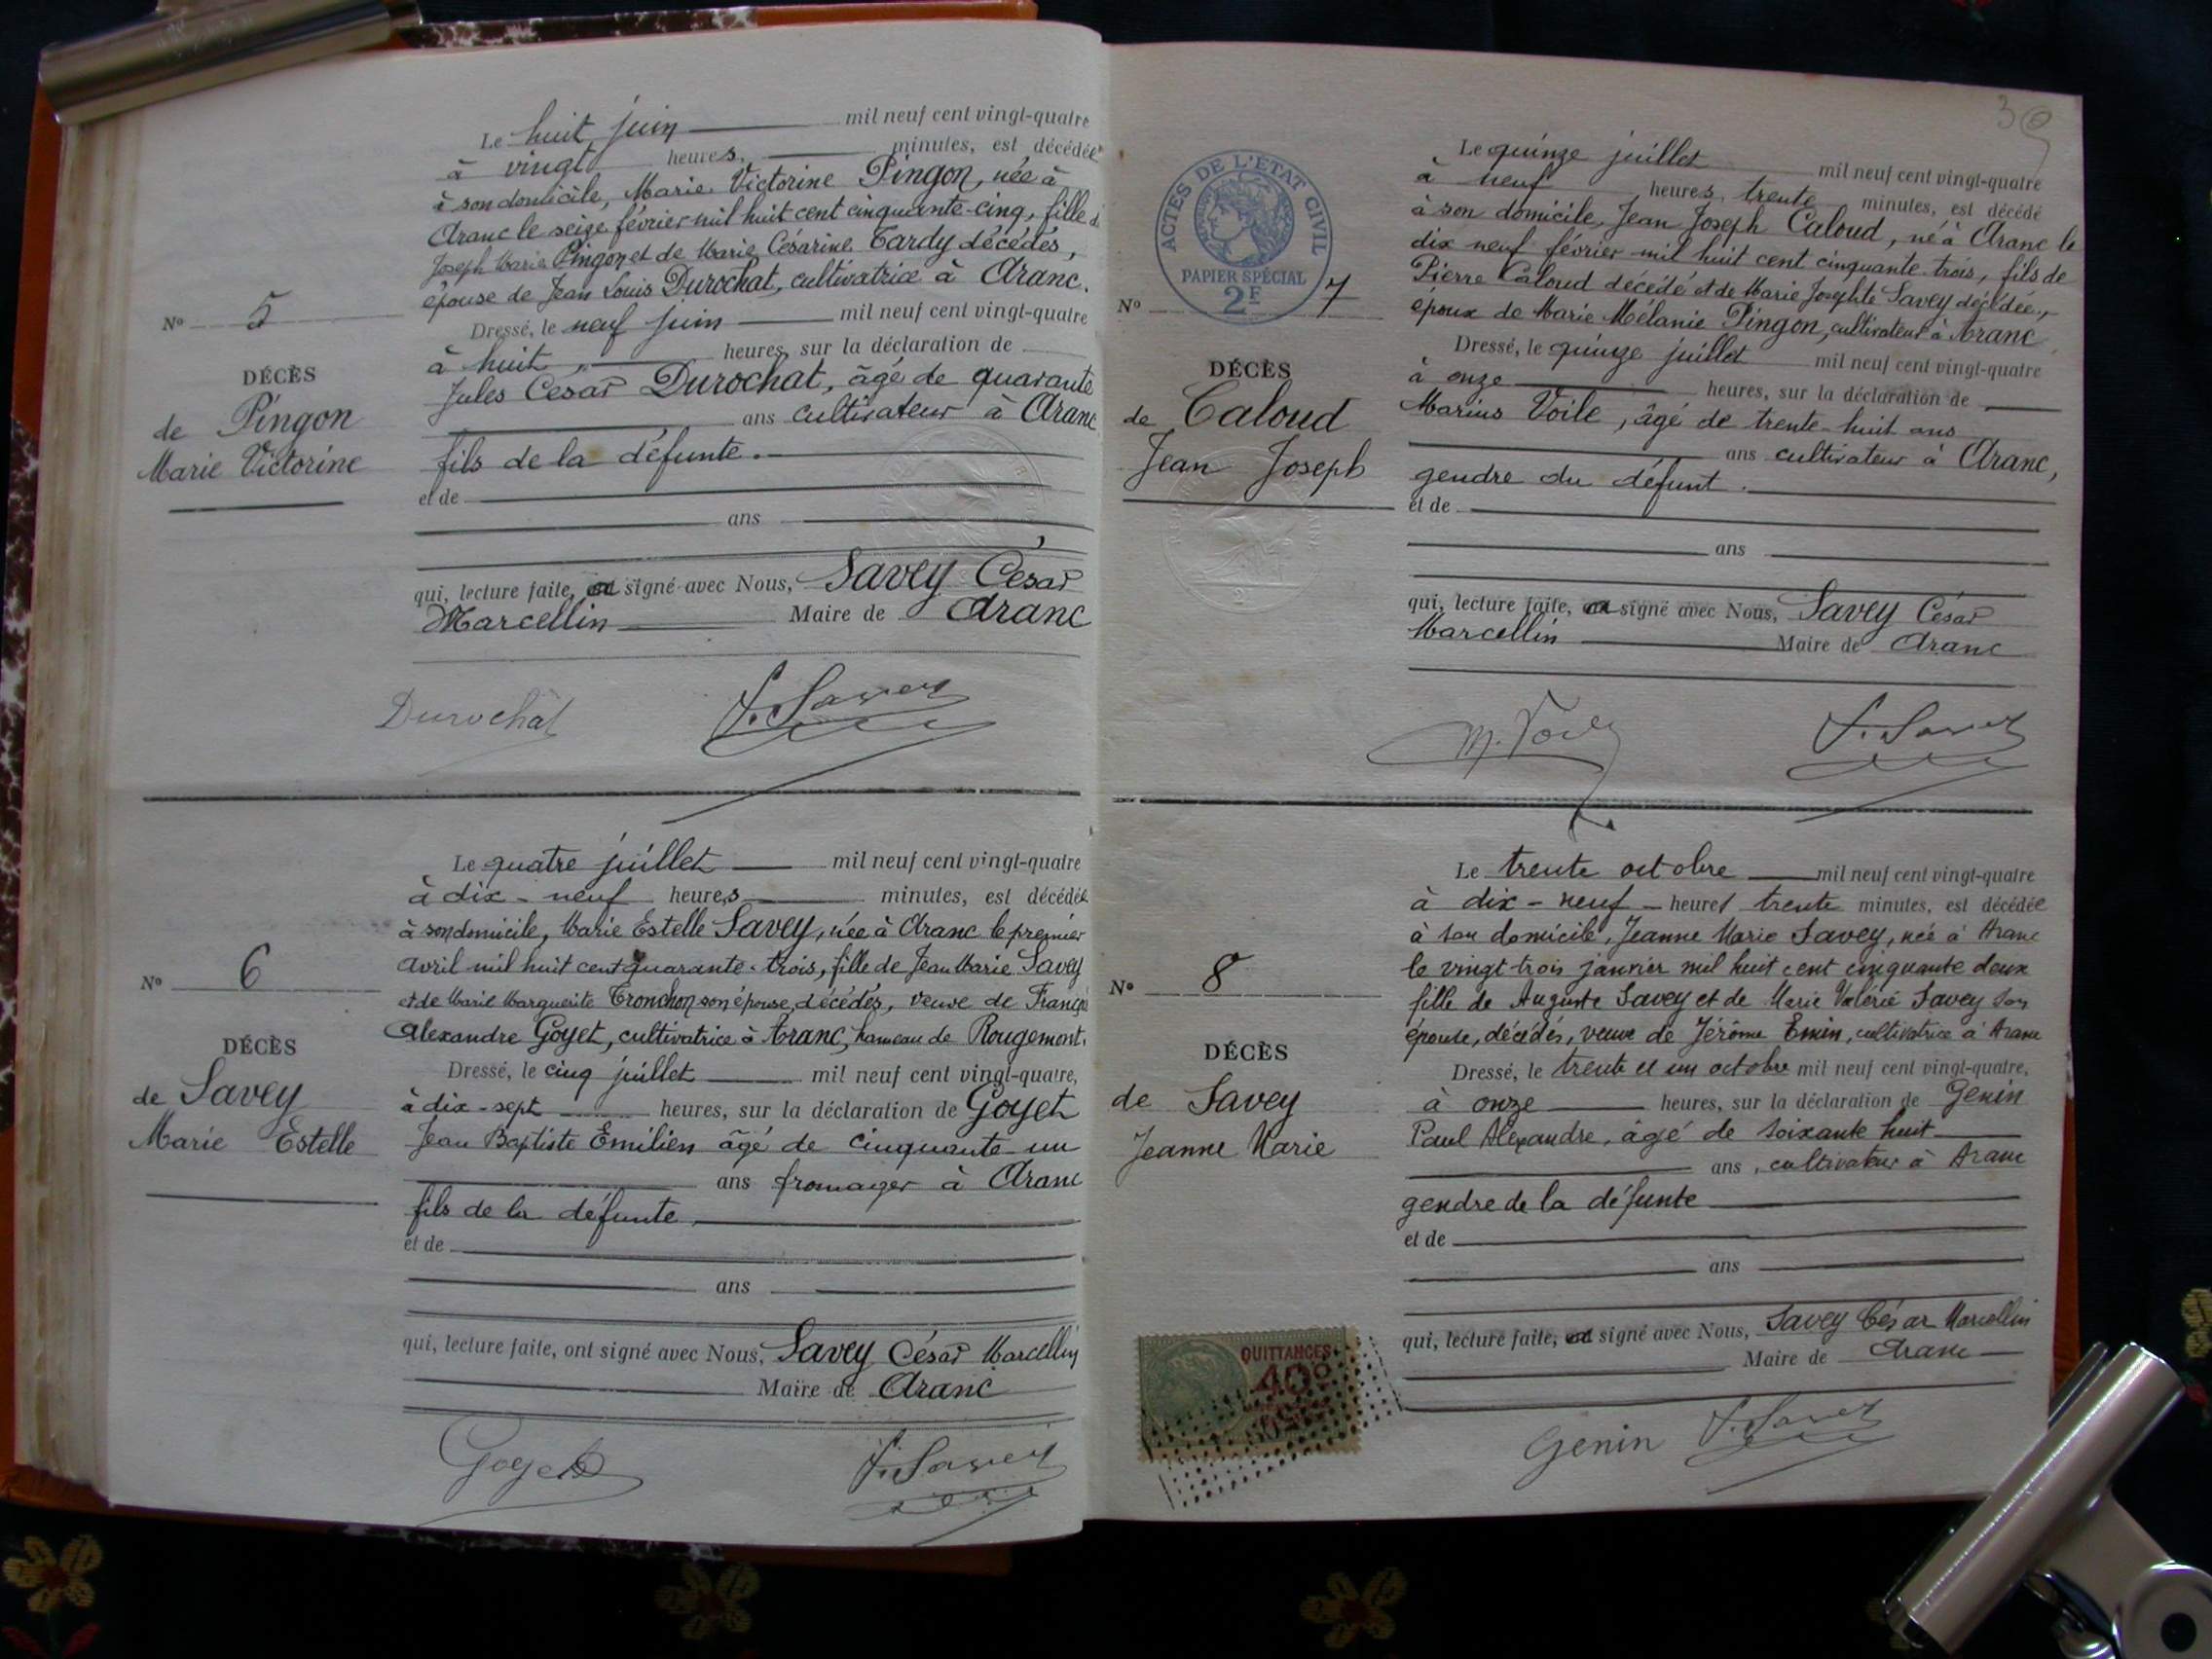 Le huit juin mil neuf cent vingt-quatre
à vingt heures, minutes, est décédée
à son domicile, Marie Victorine Pingon, née à
Aranc le seize février mil huit cent cinquante-cinq, fille de
Joseph Marie Pingon et de Marie Césarine Tardy décédés,
épouse de Jean Louis Durochat, cultivatrice à Aranc.
Nº 5
Dressé, le neuf juin mil neuf cent vingt-quatre
à huit heures, sur la déclaration de
DÉCÈS
Jules César Durochat, âgé de quarante
de Pingon
ans cultivateur à Aranc
Marie Victorine
fils de la défunte.
et de
ans
qui, lecture faite, a signé avec Nous, Savey César
Marcellin Maire de Aranc
Durochat
Le quatre juillet mil neuf cent vingt-quatre
à dix-neuf heures minutes, est décédée
à son domicile, Marie Estelle Savey, née à Aranc le premier
avril mil huit cent quarante-trois, fille de Jean Marie Savey
Nº 6
et de Marie Marguerite Tronchon son épouse, décédés, veuve de
Alexandre Goyet, cultivatrice à Aranc, hameau de Rougemont.
DÉCÈS
Dressé, le cinq juillet mil neuf cent vingt-quatre,
de Savey
à dix-sept heures, sur la déclaration de Goyet
Marie Estelle
Jean Baptiste Emilien âgé de cinquante un
ans fromager à Aranc
fils de la défunte
et de
ans
qui, lecture faite, ont signé avec Nous, Savey César Marcellin
Maire de Aranc
Goyet
J. Savey
ACTES DE L'ÉTAT CIVIL
PAPIER SPÉCIAL
2F
Le quinze juillet mil neuf cent vingt-quatre
à neuf heures, trente minutes, est décédé
à son domicile, Jean Joseph Caloud, né à Aranc le
dix neuf février mil huit cent cinquante-trois, fils de
Pierre Caloud décédé et de Marie Josephte Savey décédée,
Nº 7
époux de Marie Mélanie Pingon, cultivateur à Aranc
Dressé, le quinze juillet mil neuf cent vingt-quatre
DÉCÈS
à onze heures, sur la déclaration de
de Caloud
Marius Voile, âgé de trente-huit ans
Jean Joseph
ans cultivateur à Aranc,
gendre du défunt.
et de
ans
qui, lecture faite, a signé avec Nous, Savey César
Marcellin Maire de Aranc
Le trente octobre mil neuf cent vingt-quatre
à dix-neuf heures trente minutes, est décédée
à son domicile, Jeanne Marie Savey, née à Aranc
le vingt-trois janvier mil huit cent cinquante deux
Nº 8
fille de Auguste Savey et de Marie Valérie Savey son
épouse, décédés, veuve de Jérôme Emin, cultivatrice à Aranc
DÉCÈS
Dressé, le trente et un octobre mil neuf cent vingt-quatre,
de Savey
à onze heures, sur la déclaration de Genin
Jeanne Marie
Paul Alexandre, âgé de soixante huit
ans, cultivateur à Aranc
gendre de la défunte
et de
ans
qui, lecture faite, a signé avec Nous, Savey César Marcellin
Maire de Aranc
QUITTANCES
40c
Genin